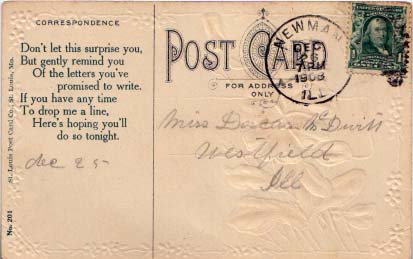 CORRESPONDENCE
Don't let this surprise you,
But gently remind you
Of the letters you've
promised to write.
If you have any time
To drop me a line,
Here's hoping you'll
do so tonight.
dec 25
No. 201
St. Louis Post Card Co., St. Louis, Mo.
POST CARD
FOR ADDRESS
ONLY
NEWMAN
DEC
1908
ILL
Miss Dorcas McDivitt
Westfield
Ill